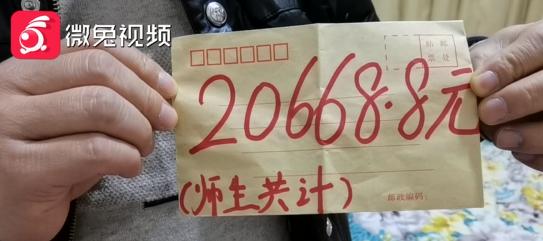 微兔视频
贴 邮
票 处
20668.8元
(师生共计)
邮政编码: